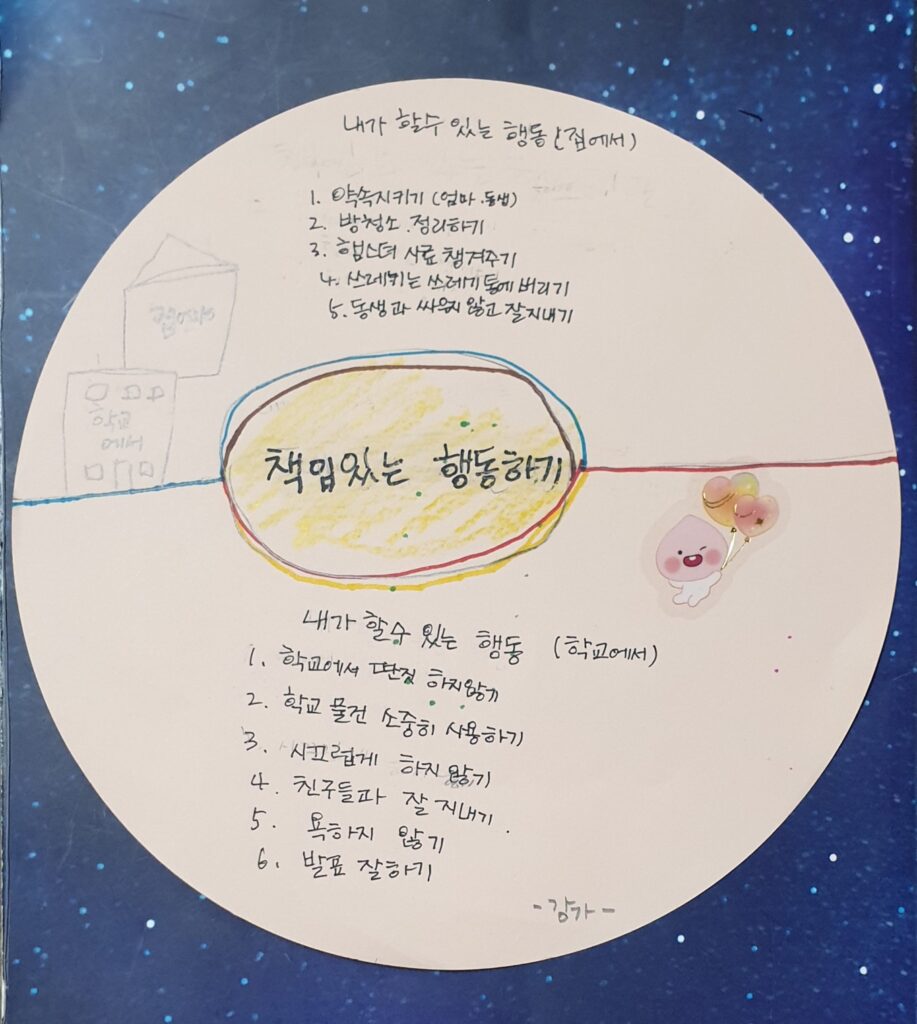 내가 할수 있는 행동 (집에서)
1. 약속지키기 (엄마.동생)
2. 방청소.정리하기
3. 햄스터 사료 챙겨주기
4. 쓰레기는 쓰레기통에 버리기
5. 동생과 싸우지 않고 잘지내기
학교
에서
책임있는 행동하기
내가 할수 있는 행동 (학교에서)
1. 학교에서 딴짓 하지않기
2. 학교 물건 소중히 사용하기
3. 시끄럽게 하지 않기
4. 친구들과 잘 지내기.
5. 욕하지 않기
6. 발표 잘하기
-강가-